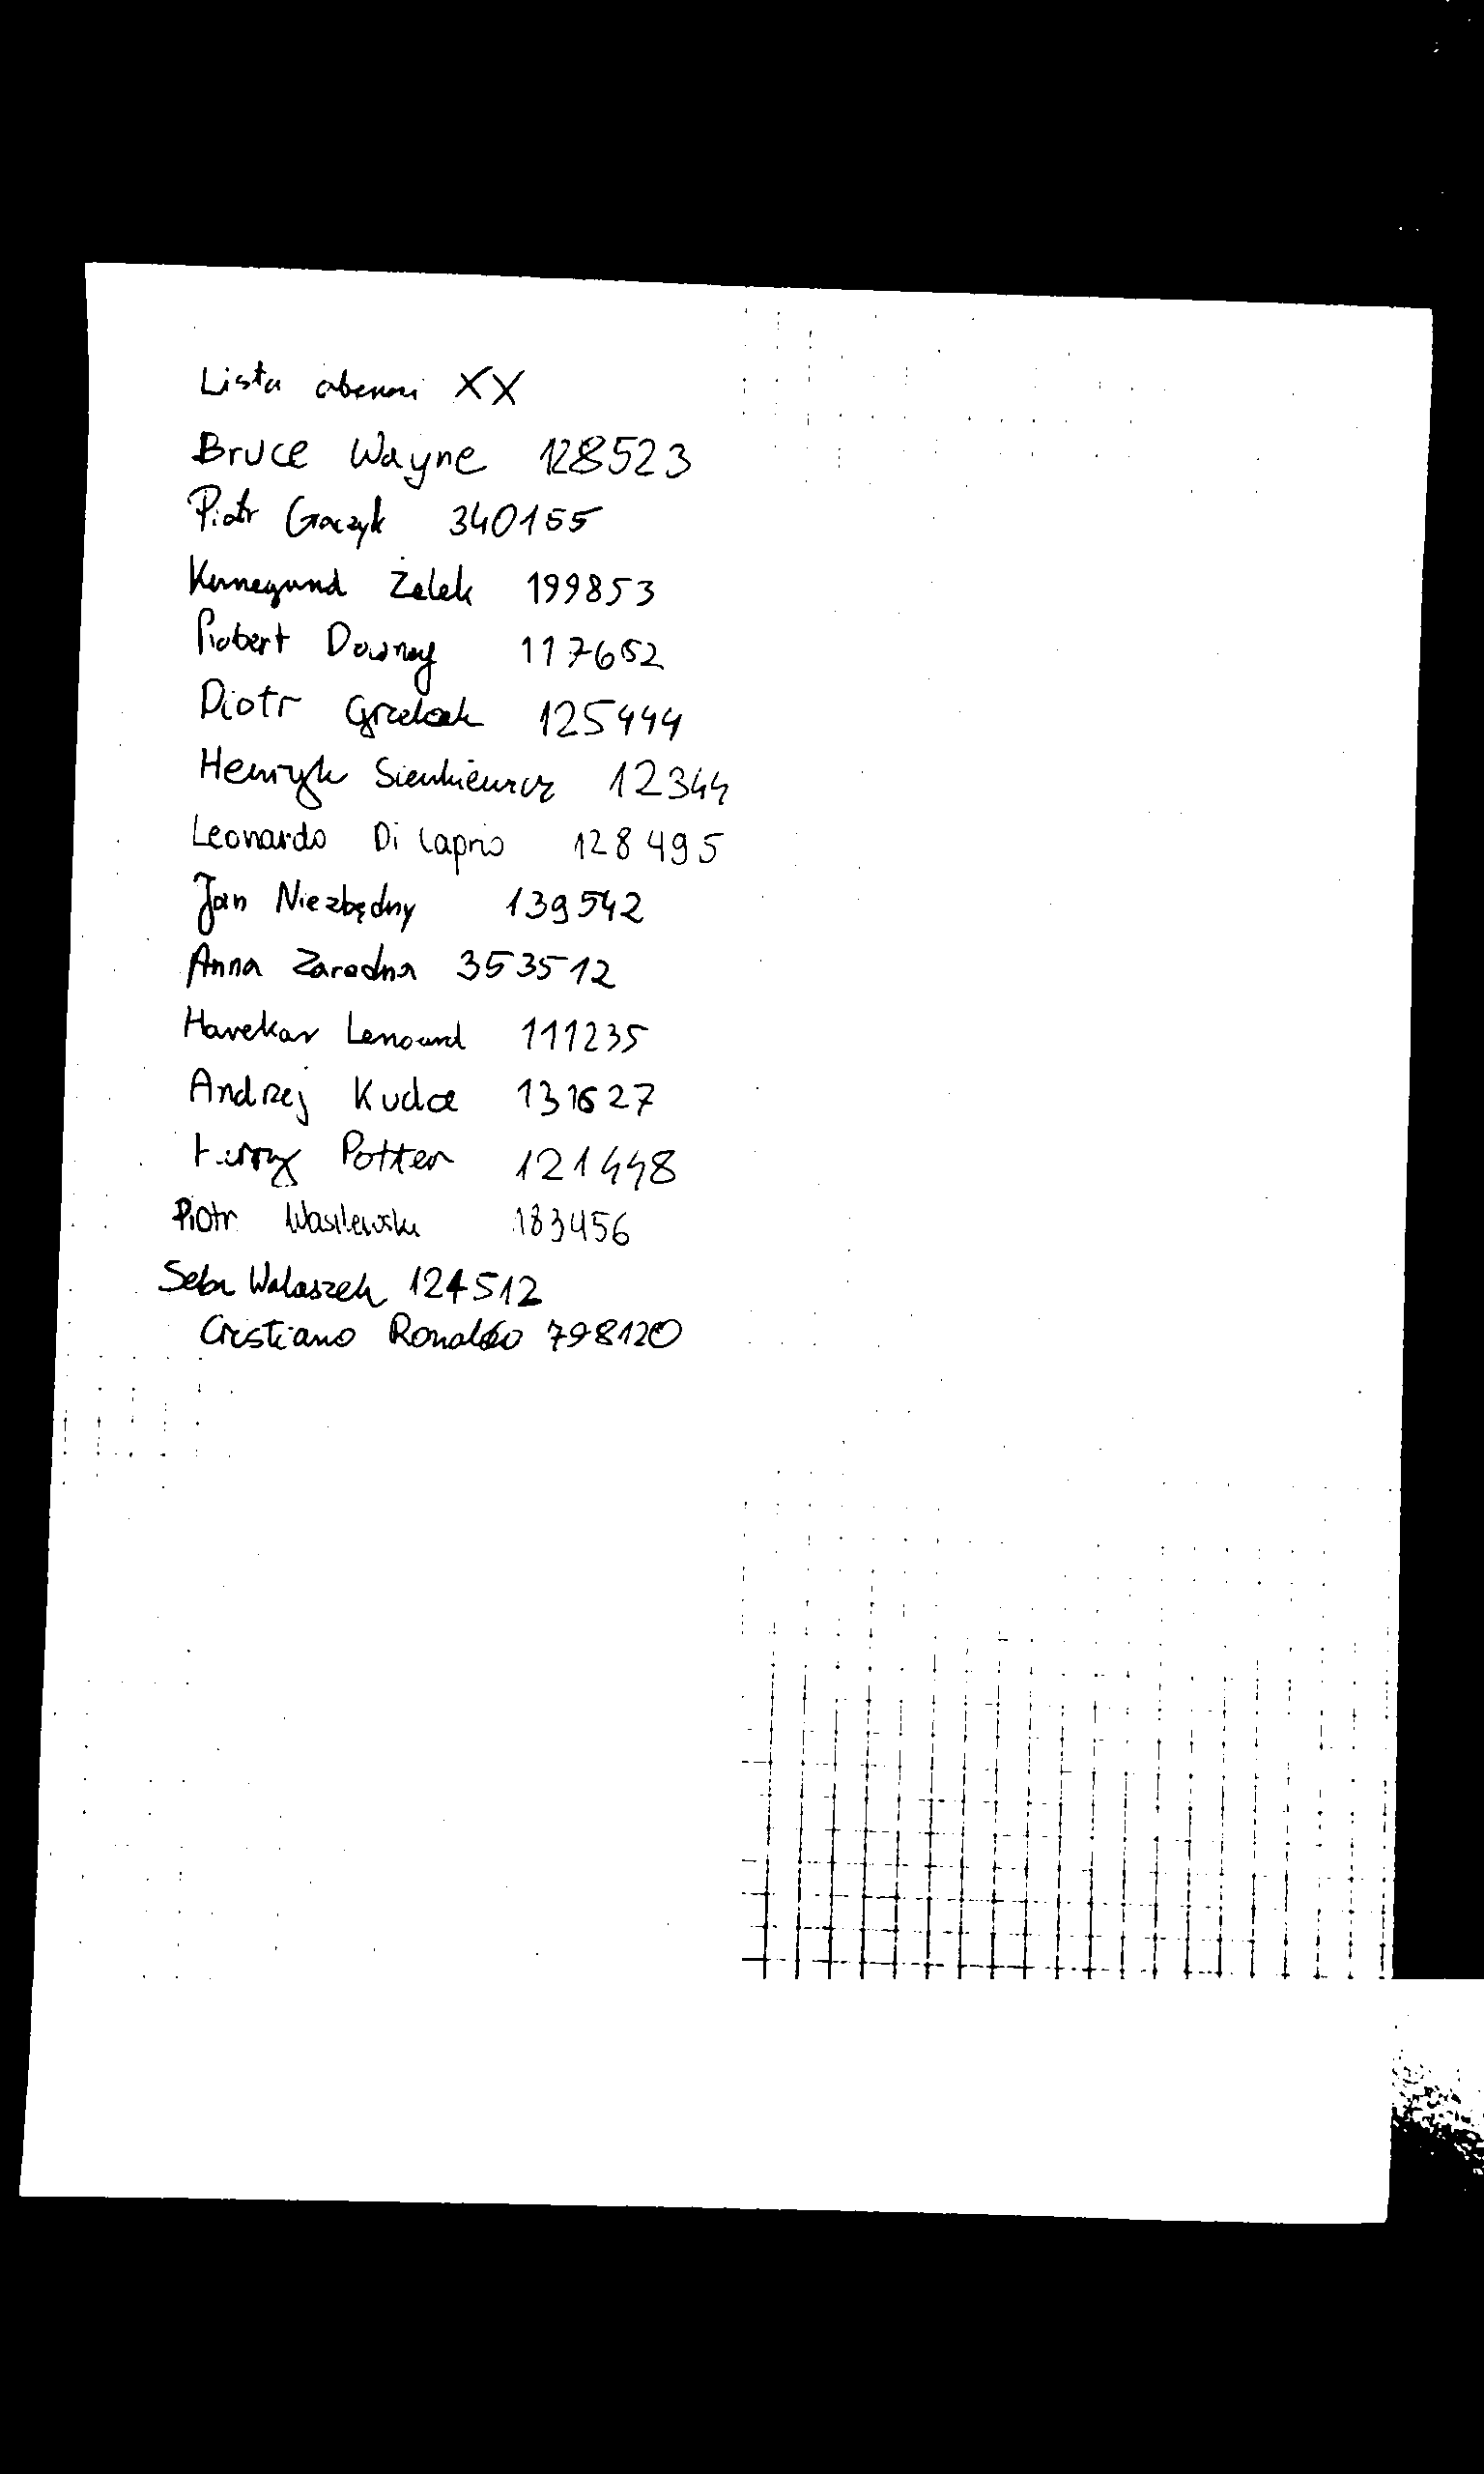 Lista obecności XX
Bruce Wayne 128523
Piotr Graczyk 340155
Kunegund Żelek 199853
Robert Downey 117652
Piotr Grzelak 125444
Henryk Sienkiewicz 12344
Leonardo Di Caprio 128495
Jan Niezbędny 139542
Anna Zaradna 353512
Lenoard 111235
Andrzej Kuda 131627
Potter 121448
Piotr Wasilewski 183456
Seba Walaszek 124512
Cristiano Ronaldo 798120